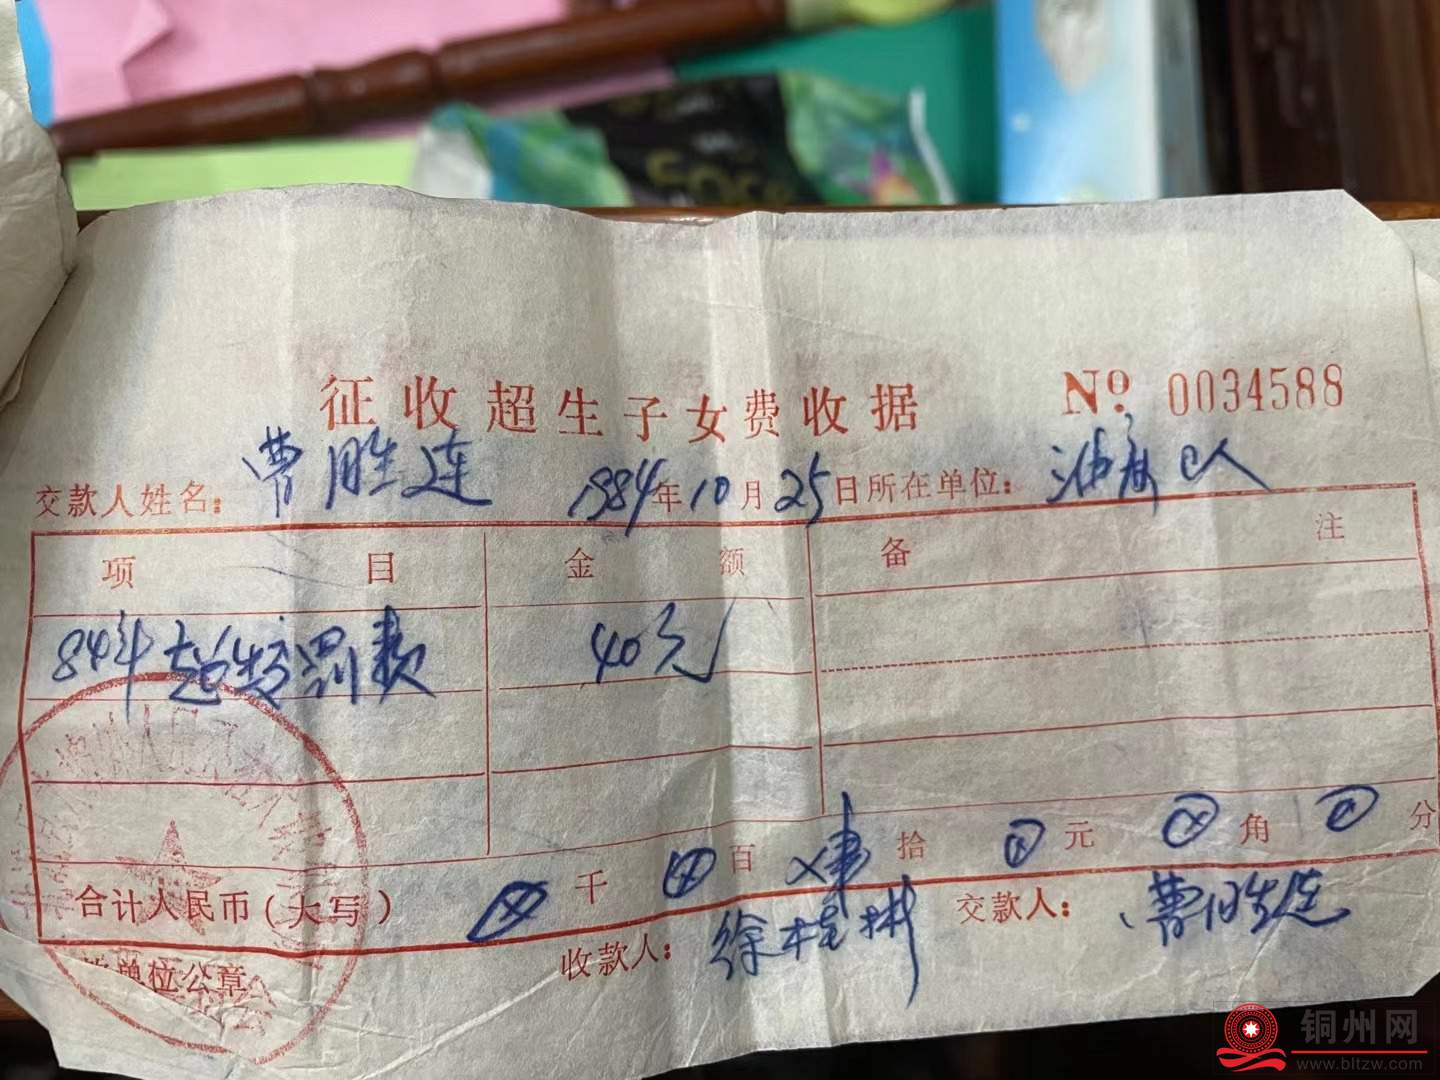 征收超生子女费收据 No 0034588
交款人姓名: 曹胜连 1984年10月25日所在单位:
项目 金额 备注
84年超生罚款 40元
合计人民币(大写) 0千0百×肆拾0元0角0分
单位公章 收款人: 徐桂彬 交款人: 曹胜连
铜州网
www.bltzw.com